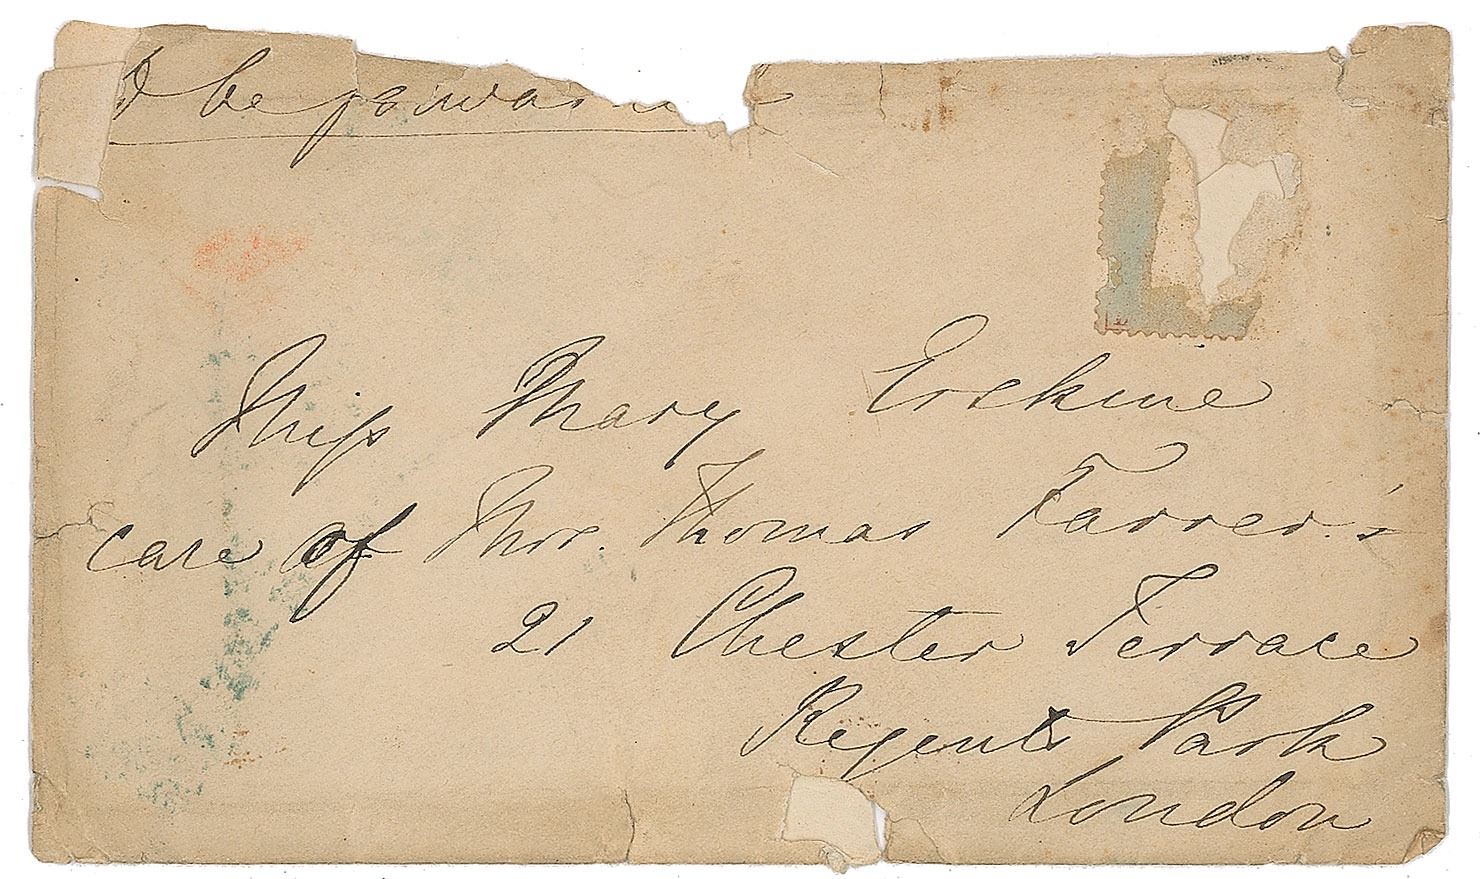 be forwar
Miss Mary Erskine
care of Mrs. Thomas Farrer's
21 Chester Terrace
Regents Park
London